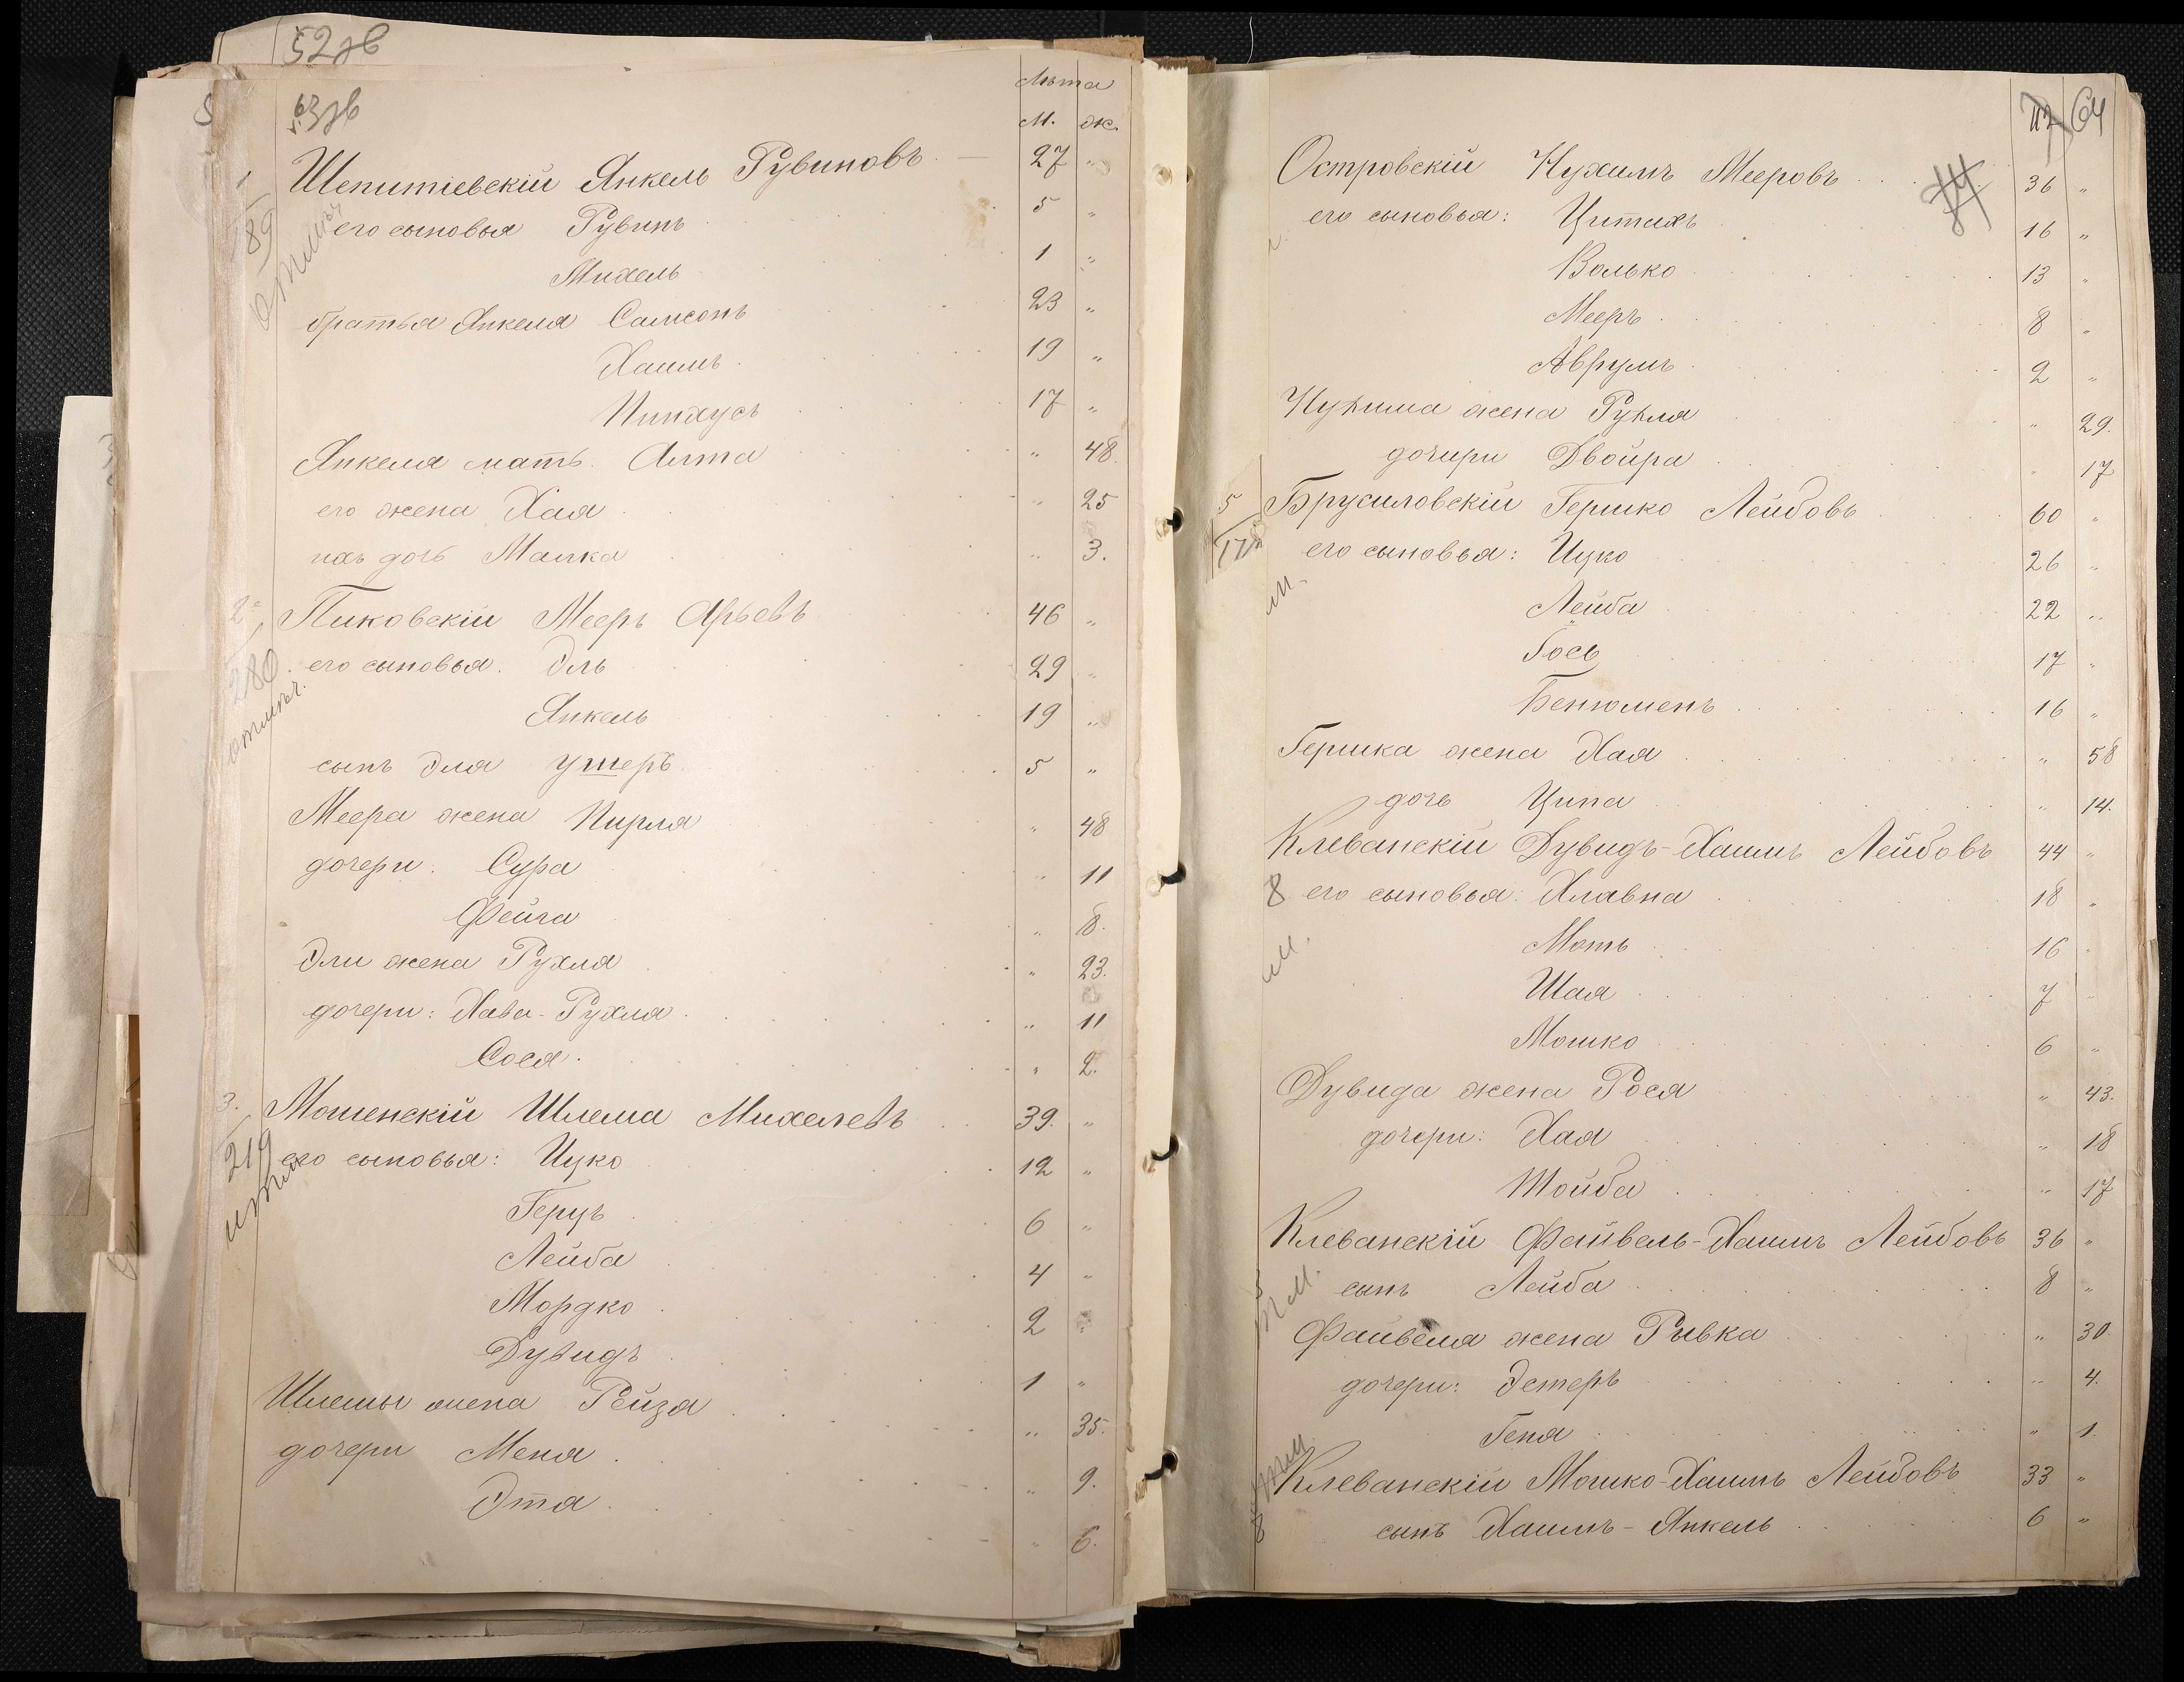 52об
63об
Лѣта
М. Ж.
1 Шепитіевскій Янкель Рувиновъ — 27 "
89 его сыновья Рувинъ 5 "
Михель 1 "
братья Янкеля Самсонъ 23 "
Хаимъ 19 "
Пинхусъ 17 "
Янкеля мать Алта " 48
его жена Хая " 25
ихъ дочь Малка " 3.
2 Пиковскій Мееръ Арьевъ 46 "
280 его сыновья. Эль 29 "
отмѣч.
Янкель 19 "
сынъ Эля Ушеръ 5 "
Меера жена Пирля " 48
дочери: Сура " 11
Фейга " 8.
Эли жена Рухля " 23.
дочери: Хава-Рухля " 11
Сося " 2.
3. Мошенскій Шлема Михелевъ 39. "
219 его сыновья: Ицко 12 "
Герцъ 6 "
Лейба 4 "
Мордко 2 "
Дувидъ 1 "
Шлемы жена Рейзя " 35.
дочери Меня " 9.
Этя " 6.
64
Островскій Нухимъ Мееровъ 36 "
его сыновья: Цитахъ 16 "
Волько 13 "
Мееръ 8 "
Аврумъ 2 "
Нухима жена Рухля " 29.
дочери Двойра " 17
5 Брусиловскій Гершко Лейбовъ 60 "
его сыновья: Ицко 26 "
Лейба 22 "
Гось 17 "
Бенюменъ 16 "
Гершка жена Хая " 58
дочь Ципа " 14.
Клеванскій Дувидъ-Хаимъ Лейбовъ 44 "
8 его сыновья: Хлавна 18 "
Моть 16 "
Шая 7 "
Мошко 6 "
Дувида жена Рося " 43.
дочери: Хая " 18
Тойба " 17
Клеванскій Файвель-Хаимъ Лейбовъ 36 "
сынъ Лейба 8 "
Файвеля жена Ривка " 30
дочери: Эстеръ " 4.
Геня " 1.
Клеванскій Мошко-Хаимъ Лейбовъ 33 "
8 сынъ Хаимъ-Янкель 6 "